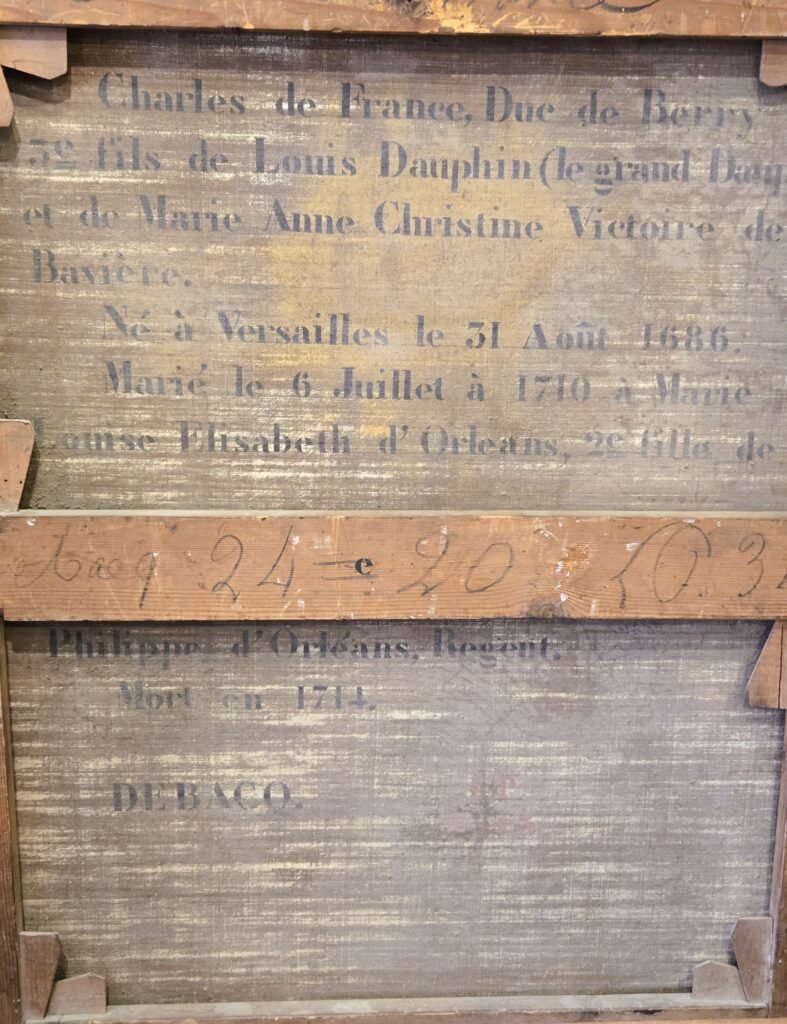 Charles de France, Duc de Berry
3e fils de Louis Dauphin (le grand Daup
et de Marie Anne Christine Victoire de
Bavière.
Né à Versailles le 31 Août 1686.
Marié le 6 Juillet à 1710 à Marie
Louise Elisabeth d'Orleans, 2e fille de
24 = e 20
Philippe d'Orléans, Regent.
Mort en 1714.
DEBACQ.